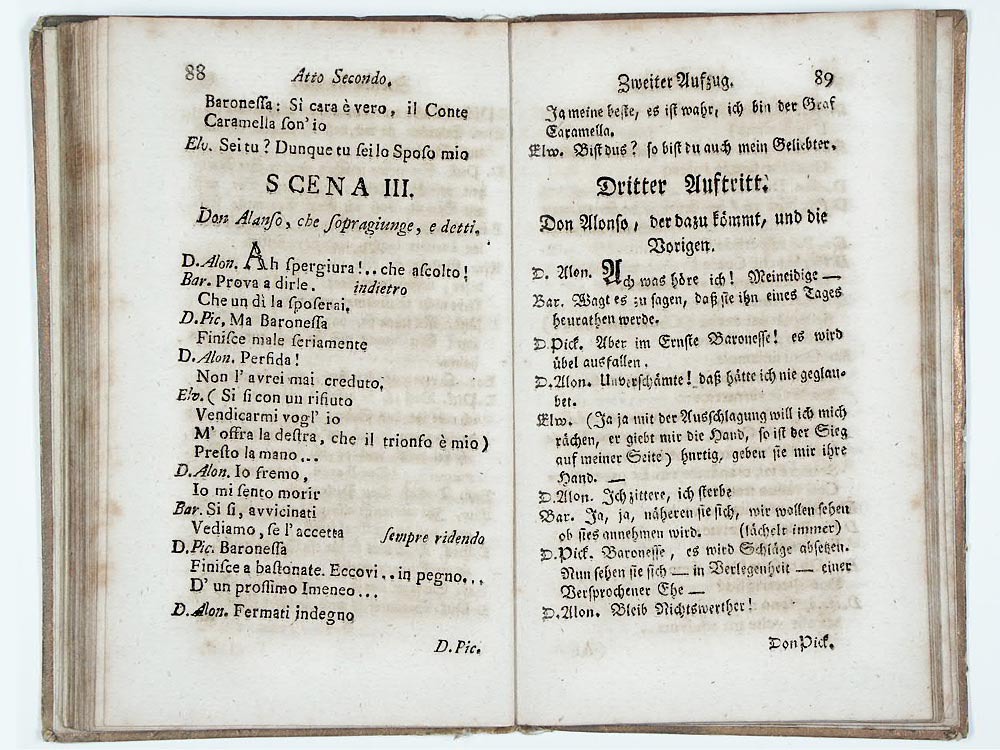 88
Atto Secondo.
Baroneſſa: Sì cara è vero, il Conte
Caramella ſon' io
Elv. Sei tu? Dunque tu ſei lo Spoſo mio
SCENA III.
Don Alanſo, che ſopragiunge, e detti.
D. Alon. Ah ſpergiura!.. che aſcolto!
Bar. Prova a dirle. indietro
Che un dì la ſpoſerai,
D. Pic. Ma Baroneſſa
Finiſce male ſeriamente
D. Alon. Perfida!
Non l' avrei mai creduto,
Elv. ( Sì ſi con un rifiuto
Vendicarmi vogl' io
M' offra la deſtra, che il trionfo è mio)
Preſto la mano...
D. Alon. Io fremo,
Io mi ſento morir
Bar. Si ſi, avvicinati
Vediamo, ſe l' accetta ſempre ridendo
D. Pic. Baroneſſa
Finiſce a baſtonate. Eccovi.. in pegno...
D' un proſſimo Imeneo...
D. Alon. Fermati indegno
D. Pic.
Zweiter Aufzug.
89
Ja meine beſte, es iſt wahr, ich bin der Graf
Caramella.
Elw. Biſt dus? ſo biſt du auch mein Geliebter.
Dritter Auftritt.
Don Alonſo, der dazu kömmt, und die
Vorigen.
D. Alon. Ach was höre ich! Meineidige —
Bar. Wagt es zu ſagen, daß ſie ihn eines Tages
heurathen werde.
D. Pick. Aber im Ernſte Baroneſſe! es wird
übel ausfallen.
D. Alon. Unverſchämte! daß hätte ich nie geglau-
bet.
Elw. (Ja ja mit der Ausſchlagung will ich mich
rächen, er giebt mir die Hand, ſo iſt der Sieg
auf meiner Seite) hurtig, geben ſie mir ihre
Hand. —
D. Alon. Ich zittere, ich ſterbe
Bar. Ja, ja, näheren ſie ſich, wir wollen ſehen
ob ſies annehmen wird. (lächelt immer)
D. Pick. Baroneſſe, es wird Schläge abſetzen.
Nun ſehen ſie ſich — in Verlegenheit — einer
Verſprochener Ehe —
D. Alon. Bleib Nichtswerther!
Don Pick.